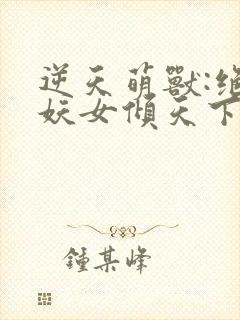 逆天萌獸:絕
妖女傾天下
鍾某峰